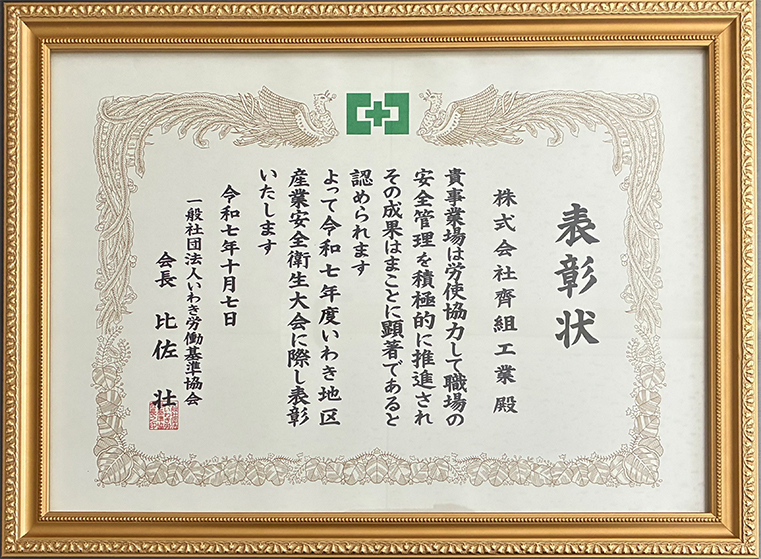 表彰状
株式会社齊組工業殿
貴事業場は労使協力して職場の
安全管理を積極的に推進され
その成果はまことに顕著であると
認められます
よって令和七年度いわき地区
産業安全衛生大会に際し表彰
いたします
令和七年十月七日
一般社団法人いわき労働基準協会
会長 比佐 壮